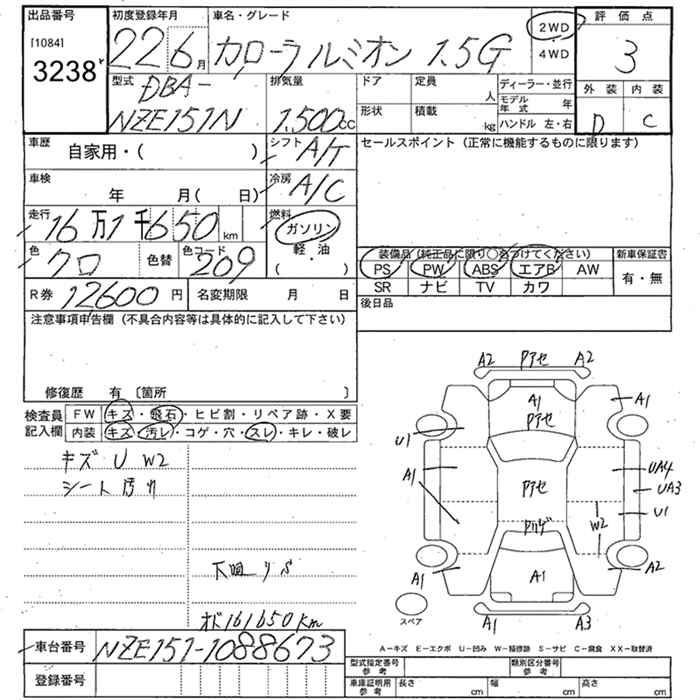 出品番号
[1084]
3238
初度登録年月
22 6月
車名・グレード
カローラルミオン 1.5G
2WD
4WD
評価点
3
外装 内装
D C
型式
DBA-
NZE151N
排気量
1,500cc
ドア
定員
人
形状
積載
kg
ディーラー・並行
モデル年式 年
ハンドル 左・右
車歴
自家用・( )
シフト
A/T
セールスポイント (正常に機能するものに限ります)
車検
年 月( 日)
冷房
A/C
走行
16万1千650km
燃料
ガソリン
軽・油
( )
色
クロ
色替
色コード
209
装備品 (純正品に限り○をつけてください)
新車保証書
PS PW ABS エアB AW
SR ナビ TV カワ
有・無
R券 12600円
名変期限 月 日
後日品
注意事項申告欄 (不具合内容等は具体的に記入して下さい)
修復歴 有 〔箇所 〕
検査員
記入欄
FW キズ・飛石・ヒビ割・リペア跡・X要
内装 キズ・汚レ・コゲ・穴・スレ・キレ・破レ
キズ U W2
シート汚れ
下廻りベ
オド161650km
A2 Pアセ A2
A1
Pアセ
A1
U1
A1
Pアセ
UA4
UA3
U1
W2
A1
A1
A2
A1 A3
スペア
A-キズ E-エクボ U-凹み W-補修跡 S-サビ C-腐食 XX-取替済
車台番号 NZE151-1088673
登録番号
型式指定番号
参考
類別区分番号
参考
車庫証明用
参考
長さ cm
幅 cm
高さ cm